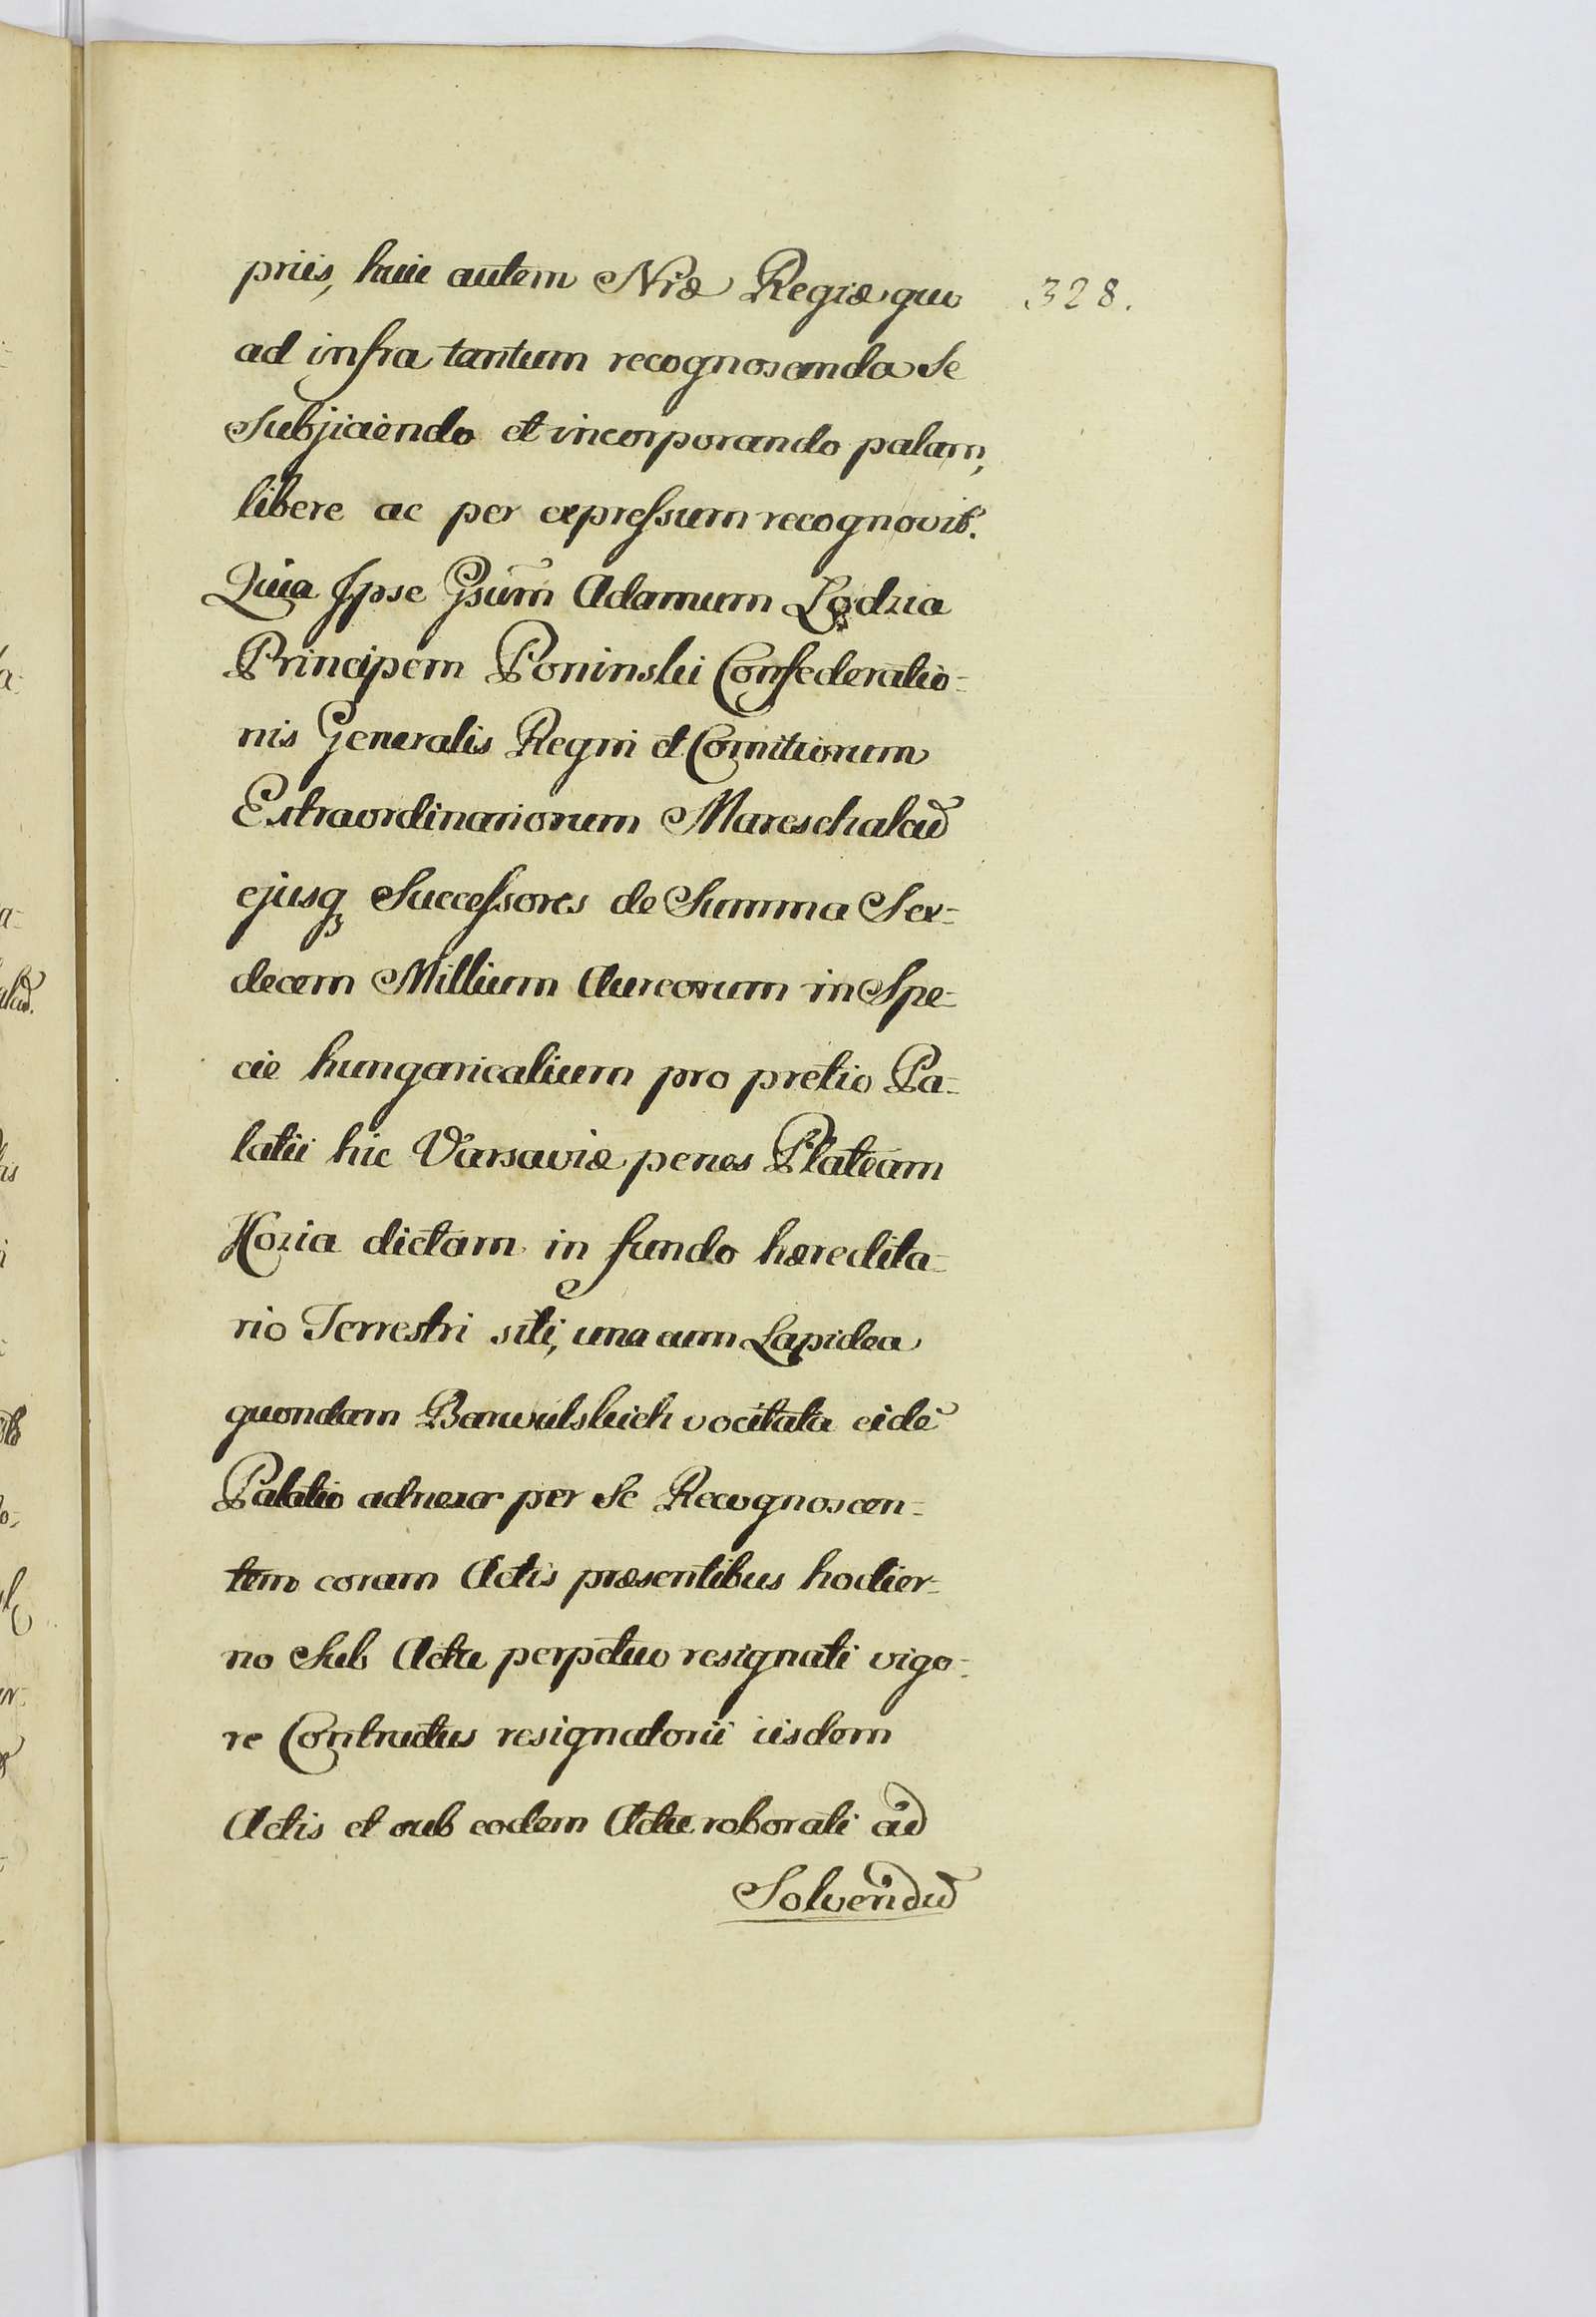 priis, huic autem Nræ Regiæ quo
328.
ad infra tantum recognoscenda Se
Subjiciendo et incorporando palam,
libere ac per expressum recognovit.
Quia Ipse Gsum Adamum Lodzia
Principem Poninski Confederatio=
nis Generalis Regni et Comitiorum
Extraordinariorum Mareschalcũ
ejusq Successores de Summa Sex=
decem Millium Aureorum in Spe=
cie hungaricalium pro pretio Pa=
latii hic Varsaviæ penes Plateam
Hozia dictam in fundo hæredita=
rio Terrestri siti, una cum Lapidea
quondam Barwulskich vocitata eidẽ
Palatio adnexa per Se Recognoscen=
tem coram Actis præsentibus hodier=
no Sub Actu perpetuo resignati vigo=
re Contractus resignatorii iisdem
Actis et sub eodem Actu roborati ad
Solvendũ